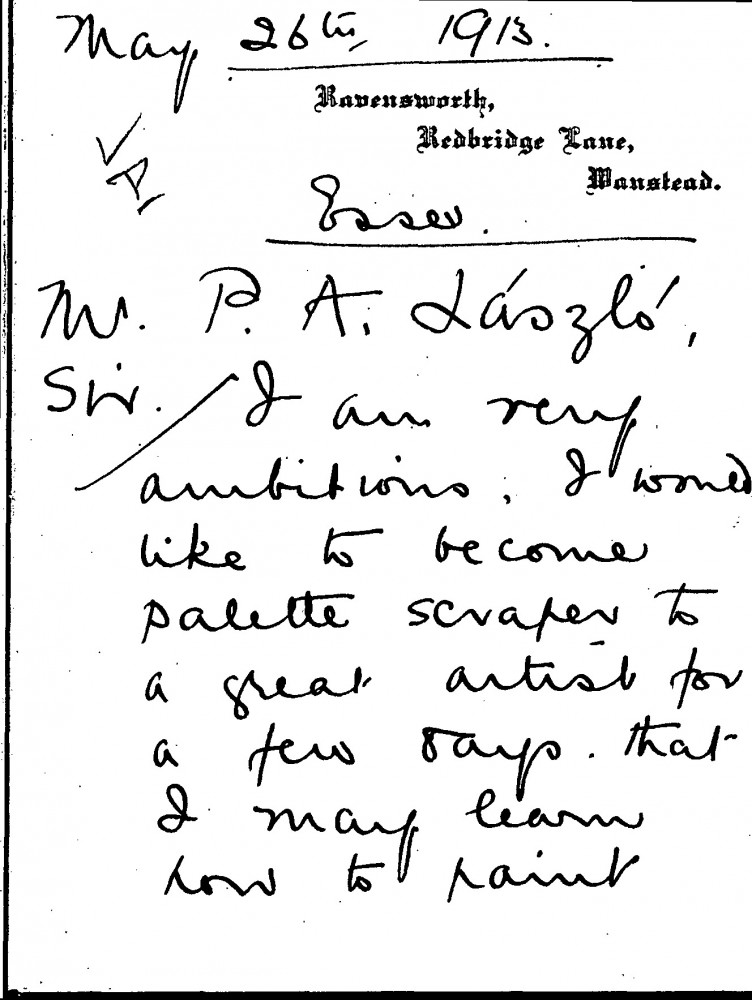 May 26th, 1913.
Ravensworth,
Redbridge Lane,
Wanstead.
Essex.
Mr. P. A. László,
Sir. I am very
ambitious; I would
like to become
palette scraper to
a great artist for
a few days. that
I may learn
how to paint